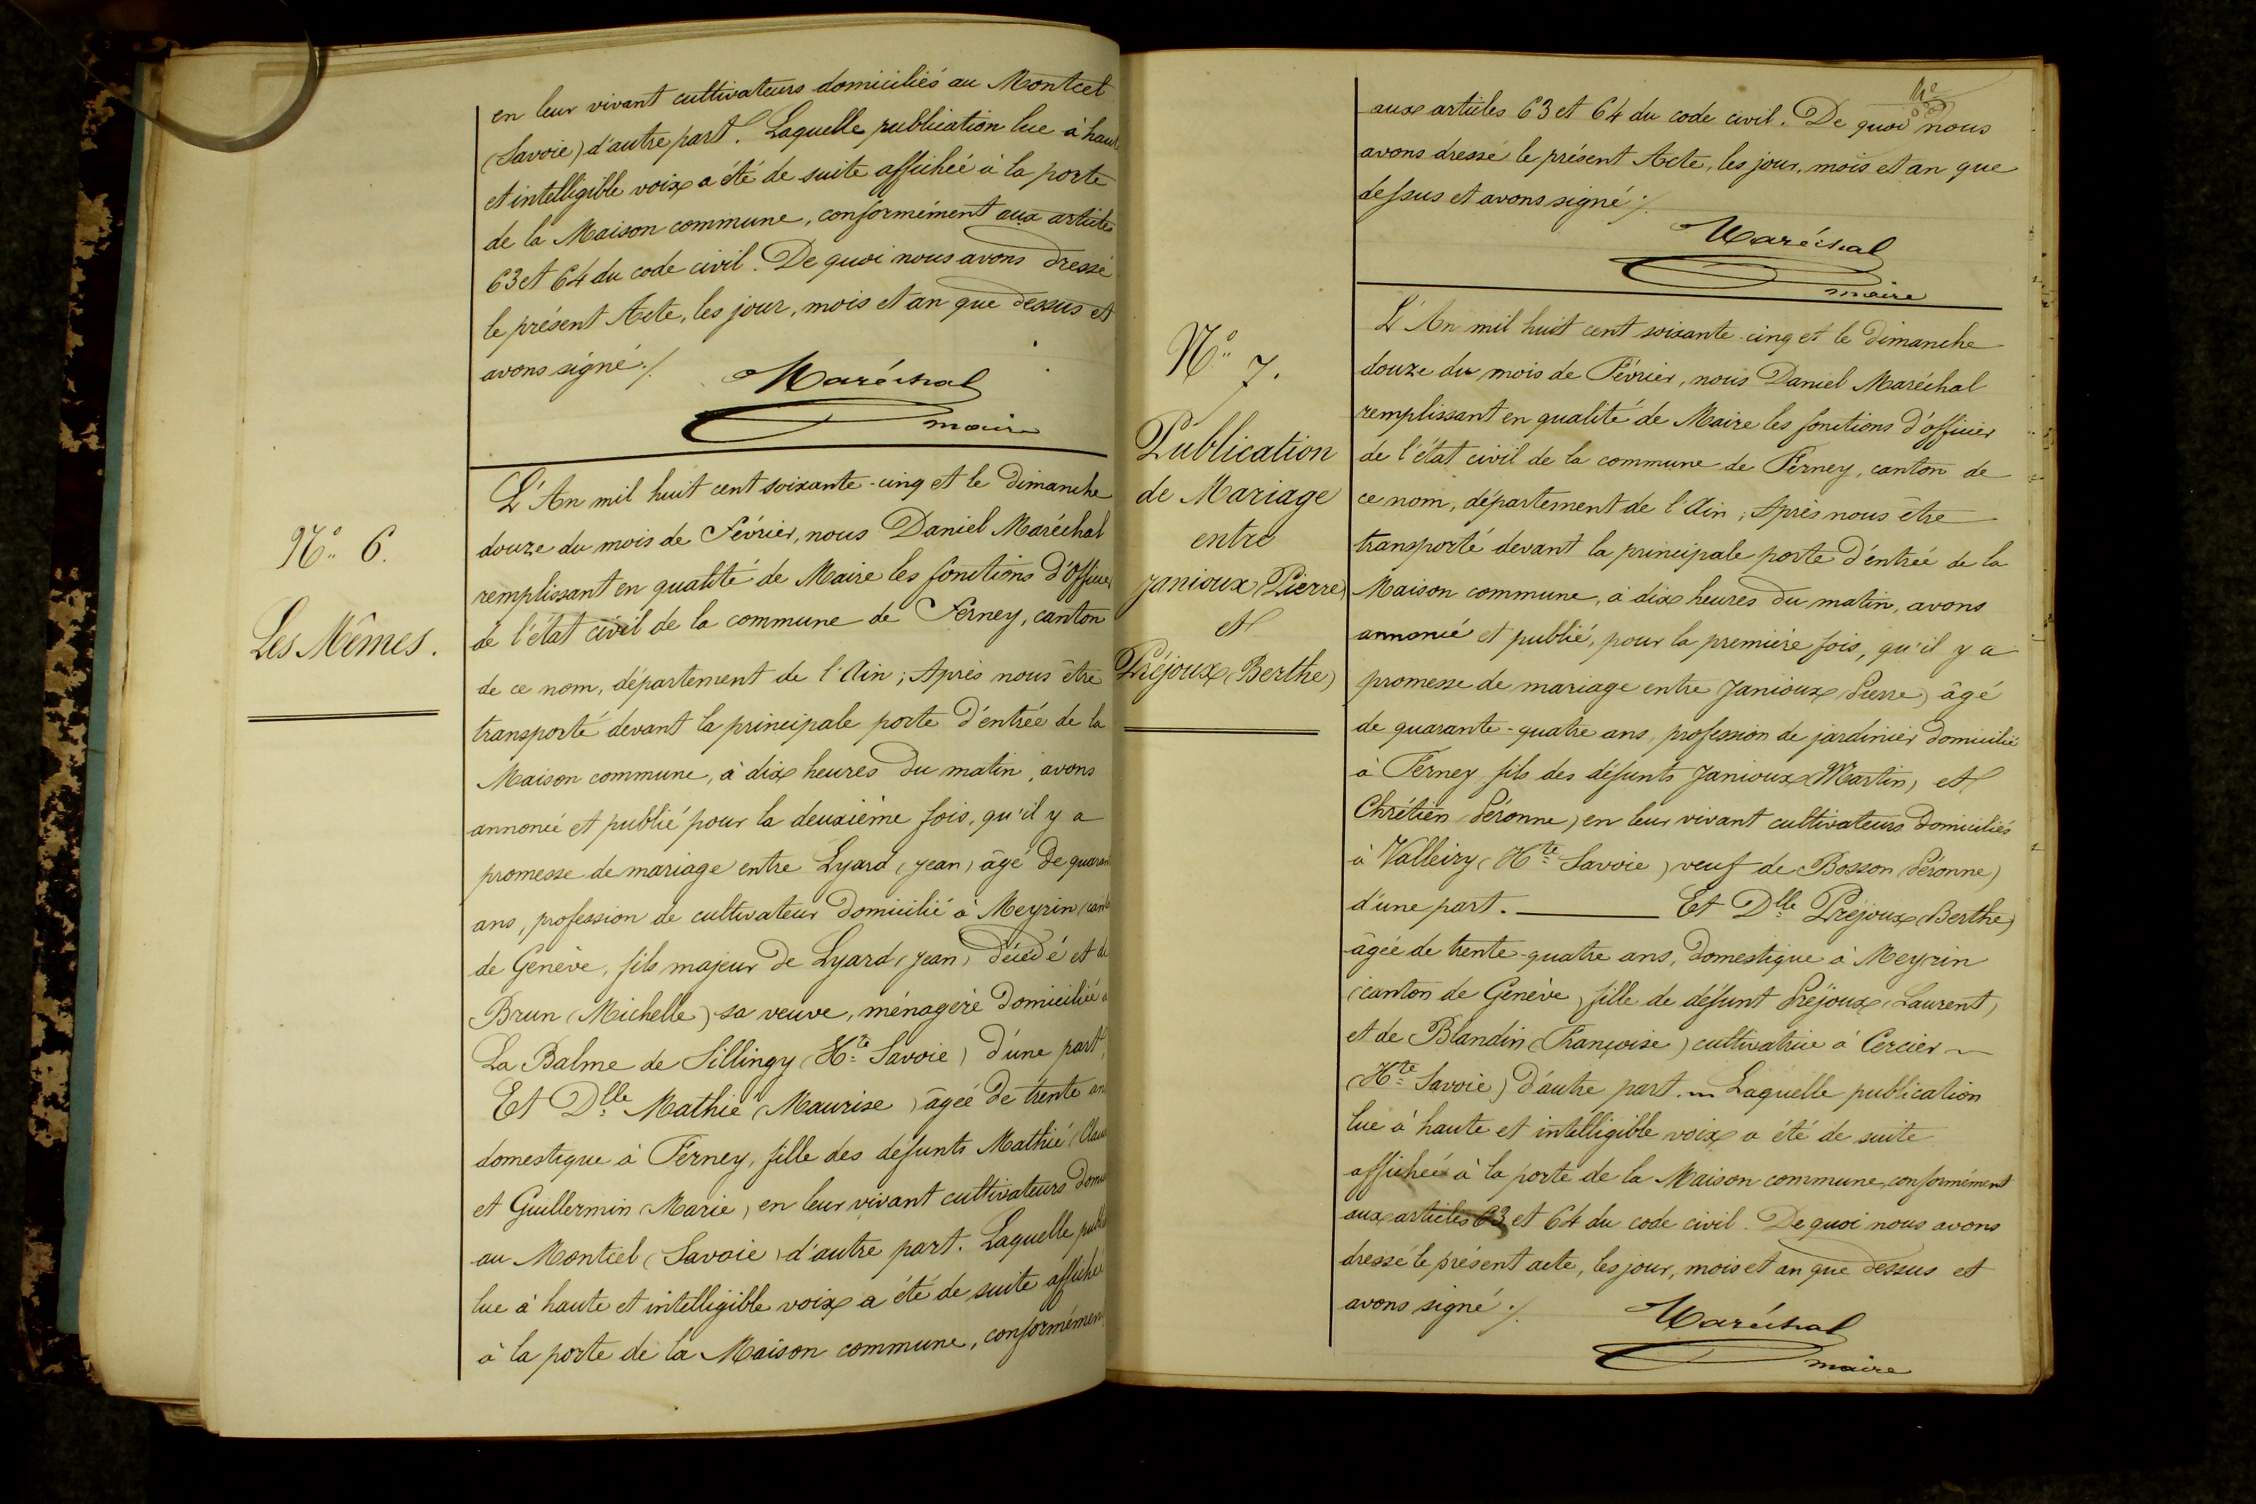 en leur vivant cultivateurs domiciliés au Montcel
(Savoie) d'autre part. Laquelle publication lue à haut
et intelligible voix a été de suite affichée à la porte
de la Maison commune, conformément aux articles
63 et 64 du code civil. De quoi nous avons dressé
le présent Acte, les jour, mois et an que dessus et
avons signé ./.
Maréchal
maire
N° 6.
Les Mêmes.
L'An mil huit cent soixante-cinq et le Dimanche
douze du mois de Février, nous Daniel Maréchal
remplissant en qualité de Maire les fonctions d'Officier
de l'état civil de la commune de Ferney, canton
de ce nom, département de l'Ain; Après nous être
transporté devant la principale porte d'entrée de la
Maison commune, à dix heures du matin, avons
annoncé et publié pour la deuxième fois, qu'il y a
promesse de mariage entre Lyard (Jean) âgé de quaran
ans, profession de cultivateur domicilié à Meyrin (cant
de Genève, fils majeur de Lyard (Jean) décédé et de
Brun (Michelle) sa veuve, ménagère domiciliée à
La Balme de Sillingy (Hte Savoie) d'une part,
Et Dlle Mathié (Maurise) âgée de trente ans
domestique à Ferney, fille des défunts Mathié (Clau
et Guillermin (Marie) en leur vivant cultivateurs domi
au Montcel (Savoie) d'autre part. Laquelle publi
lue à haute et intelligible voix a été de suite affichée
à la porte de la Maison commune, conformément
aux articles 63 et 64 du code civil. De quoi nous
avons dressé le présent Acte, les jour, mois et an que
dessus et avons signé ./.
Maréchal
maire
N° 7.
Publication
de Mariage
entre
Janioux (Pierre)
et
Préjoux (Berthe)
L'An mil huit cent soixante-cinq et le Dimanche
douze du mois de Février, nous Daniel Maréchal
remplissant en qualité de Maire les fonctions d'officier
de l'état civil de la commune de Ferney, canton de
ce nom, département de l'Ain; Après nous être
transporté devant la principale porte d'entrée de la
Maison commune, à dix heures du matin, avons
annoncé et publié, pour la première fois, qu'il y a
promesse de mariage entre Janioux (Pierre) âgé
de quarante-quatre ans, profession de jardinier domicilié
à Ferney fils des défunts Janioux (Martin) et
Chrétien (Péronne) en leur vivant cultivateurs domiciliés
à Valleiry (Hte Savoie) veuf de Bosson (Péronne)
d'une part. Et Dlle Préjoux (Berthe)
âgée de trente-quatre ans, domestique à Meyrin
(canton de Genève) fille de défunt Préjoux (Laurent)
et de Blandin (Françoise) cultivatrice à Cercier
(Hte Savoie) d'autre part. Laquelle publication
lue à haute et intelligible voix a été de suite
affichée à la porte de la Maison commune, conformément
aux articles 63 et 64 du code civil. De quoi nous avons
dressé le présent acte, les jour, mois et an que dessus et
avons signé ./.
Maréchal
maire